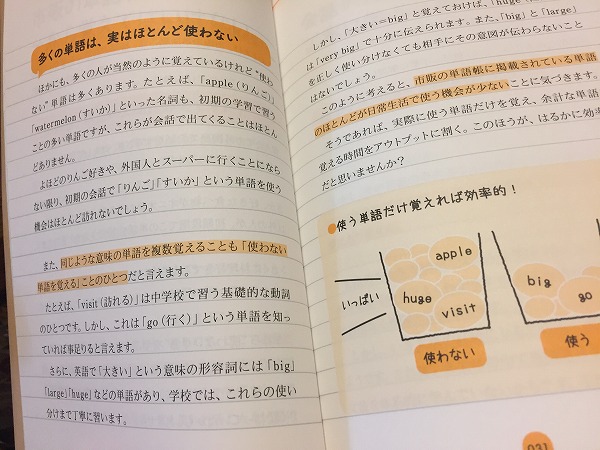 多くの単語は、実はほとんど使わない
ほかにも、多くの人が当然のように覚えているけれど"使わ
ない"単語は多くあります。たとえば、「apple（りんご）」
「watermelon（すいか）」といった名詞も、初期の学習で習う
ことの多い単語ですが、これらが会話で出てくることはほとん
どありません。
よほどのりんご好きや、外国人とスーパーに行くことになら
ない限り、初期の会話で「りんご」「すいか」という単語を使う
機会はほとんど訪れないでしょう。
また、同じような意味の単語を複数覚えることも「使わない
単語を覚える」ことのひとつだと言えます。
たとえば、「visit（訪れる）」は中学校で習う基礎的な動詞
のひとつです。しかし、これは「go（行く）」という単語を知っ
ていれば事足りると言えます。
さらに、英語で「大きい」という意味の形容詞には「big」
「large」「huge」などの単語があり、学校では、これらの使い
分けまで丁寧に習います。
しかし、「大きい＝big」と覚えておけば、「huge
は「very big」で十分に伝えられます。また、「big」と「large」
を正しく使い分けなくても相手にその意図が伝わらないこと
はないでしょう。
このように考えると、市販の単語帳に掲載されている単語
のほとんどが日常生活で使う機会が少ないことに気づきます。
そうであれば、実際に使う単語だけを覚え、余計な単語
覚える時間をアウトプットに割く。このほうが、はるかに効率
だと思いませんか？
使う単語だけ覚えれば効率的！
いっぱい
apple
huge
visit
使わない
big
go
使う
031